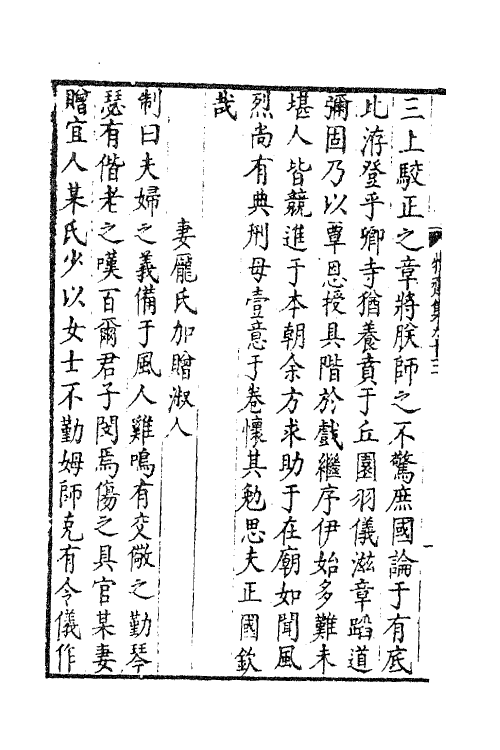 牧齋集九十三
三上駮正之章將朕師之不驚庶國論于有底
比洊登乎卿寺猶養賁于丘園羽儀滋章蹈道
彌固乃以覃恩授具階於戲繼序伊始多難未
堪人皆競進于本朝余方求助于在廟如聞風
烈尚有典刑毋壹意于卷懷其勉思夫正國欽
哉
妻龐氏加贈淑人
制曰夫婦之義備于風人雞鳴有交儆之勤琴
瑟有偕老之嘆百爾君子閔焉傷之具官某妻
贈宜人某氏少以女士不勤姆師克有令儀作